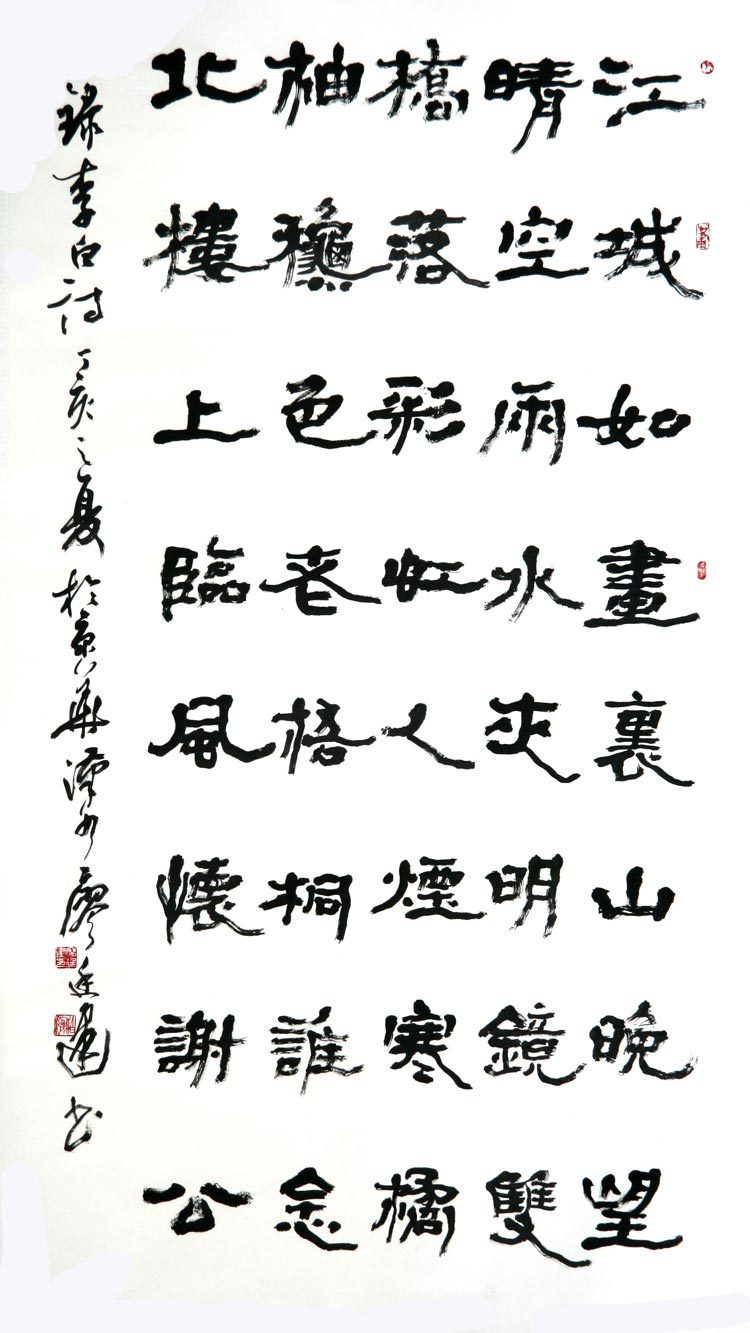 江城如畫裏山晚望
晴空兩水夾明鏡雙
橋落彩虹人煙寒橘
柚龝色老梧桐誰念
北樓上臨風懷謝公
錄李白詩丁亥之夏於京華廖書